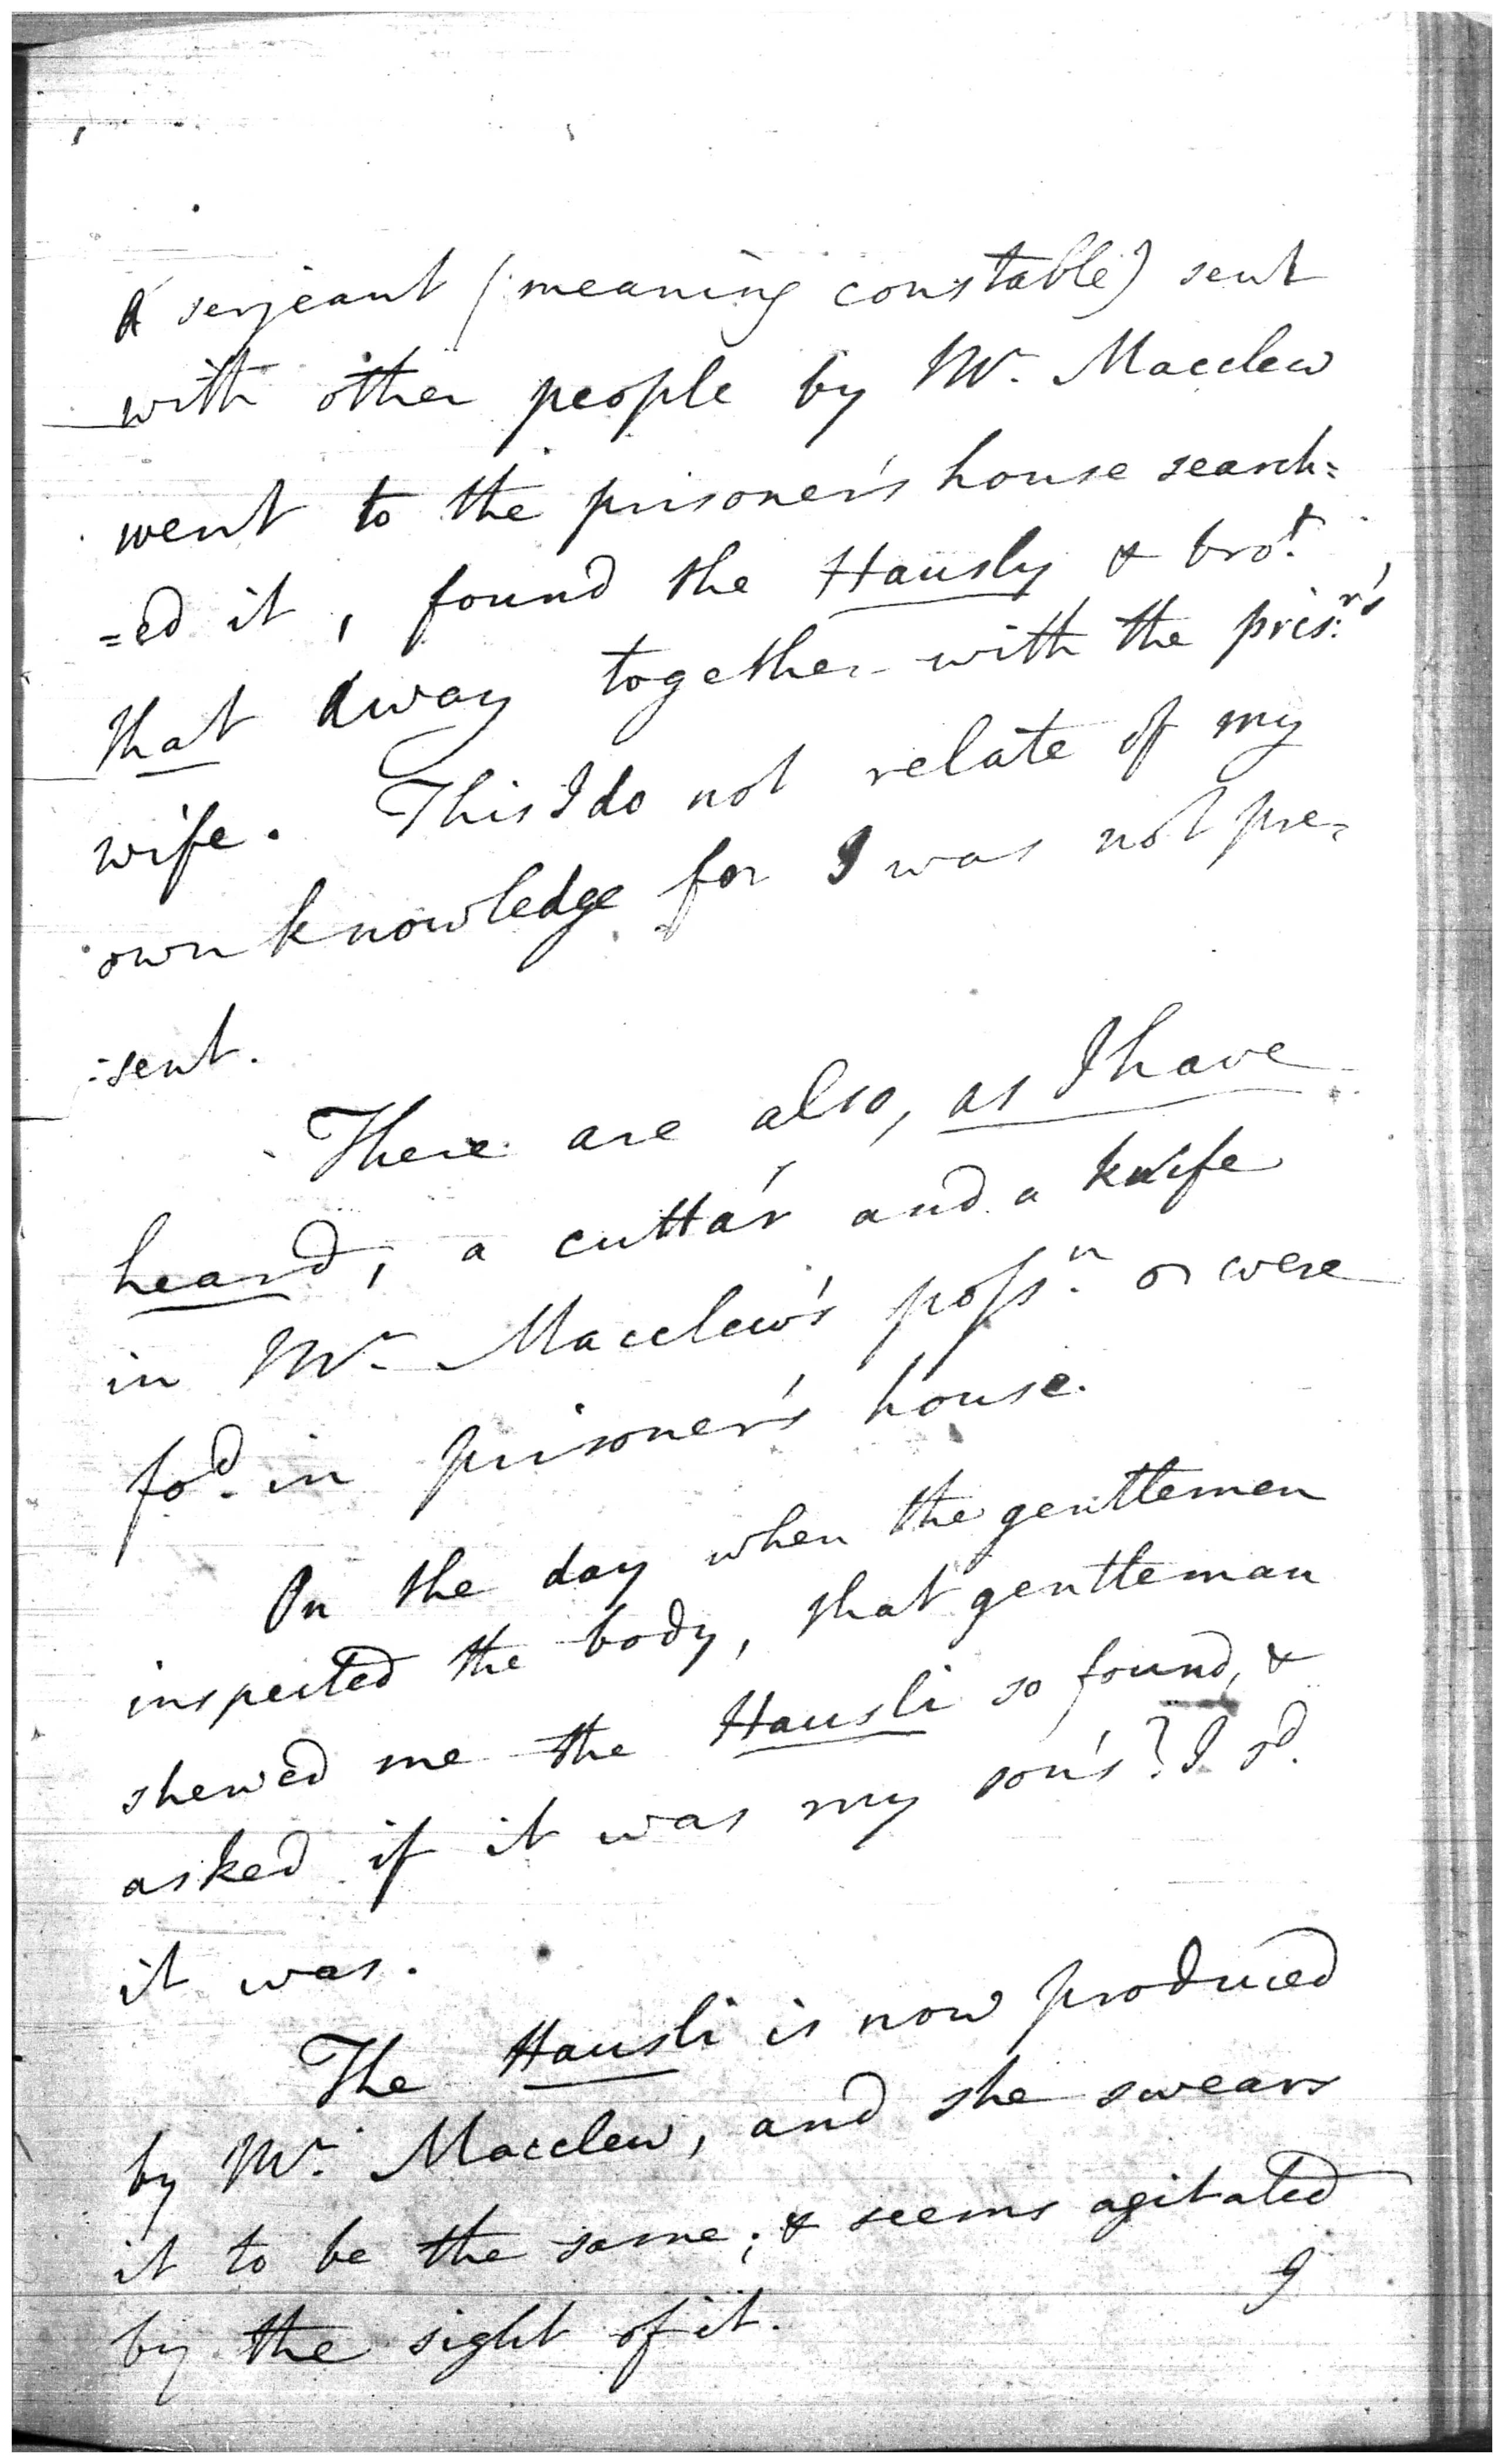 A serjeant (meaning constable) sent
with other people by Mr. Macclew
went to the prisoner's house search=
=ed it, found the Hausly & brot.
that away together with the pris:r's
wife. This I do not relate of my
own knowledge for I was not pre=
=sent.
There are also, as I have
heard, a cuttár and a knife
in Mr. Macclew's possn. or were
fod. in prisoner's house.
On the day when the gentlemen
inspected the body, that gentleman
shewed me the Hausli so found, &
asked if it was my son's? I sd.
it was.
The Hausli is now produced
by Mr. Macclew, and she swears
it to be the same; & seems agitated
by the sight of it.